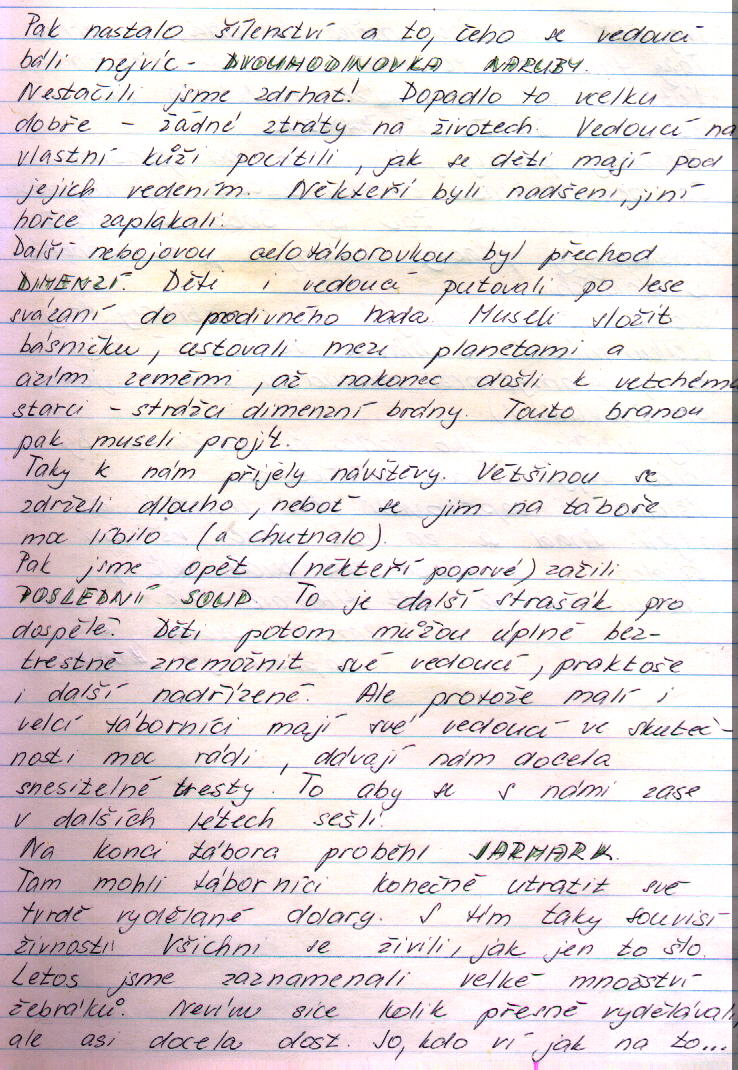 Pak nastalo šílenství a to, čeho se vedoucí
báli nejvíc - DVOUHODINOVKA NARUBY.
Nestačili jsme zdrhat! Dopadlo to vcelku
dobře - žádné ztráty na životech. Vedoucí na
vlastní kůži pocítili, jak se děti mají pod
jejich vedením. Někteří byli nadšeni, jiní
hořce zaplakali.
Další nebojovou celotáborovkou byl přechod
DIMENZÍ. Děti i vedoucí putovali po lese
svázaní do podivného hada. Museli složit
básničku, cestovali mezi planetami a
cizími zeměmi, až nakonec došli k vetchému
starci - strážci dimenzní brány. Touto branou
pak museli projít.
Taky k nám přijely návštěvy. Většinou se
zdrželi dlouho, neboť se jim na táboře
moc líbilo (a chutnalo).
Pak jsme opět (někteří poprvé) zažili
POSLEDNÍ SOUD. To je další strašák pro
dospělé. Děti potom můžou úplně bez-
trestně znemožnit své vedoucí, praktoše
i další nadřízené. Ale protože malí i
velcí táborníci mají své vedoucí ve skuteč-
nosti moc rádi, dávají nám docela
snesitelné tresty. To aby se s námi zase
v dalších létech sešli.
Na konci tábora proběhl JARMARK.
Tam mohli táborníci konečně utratit své
tvrdě vydělané dolary. S tím taky souvisí
živnosti. Všichni se živili, jak jen to šlo.
Letos jsme zaznamenali velké množství
žebráků. Nevím sice kolik přesně vydělávali,
ale asi docela dost. Jo, kdo ví jak na to...